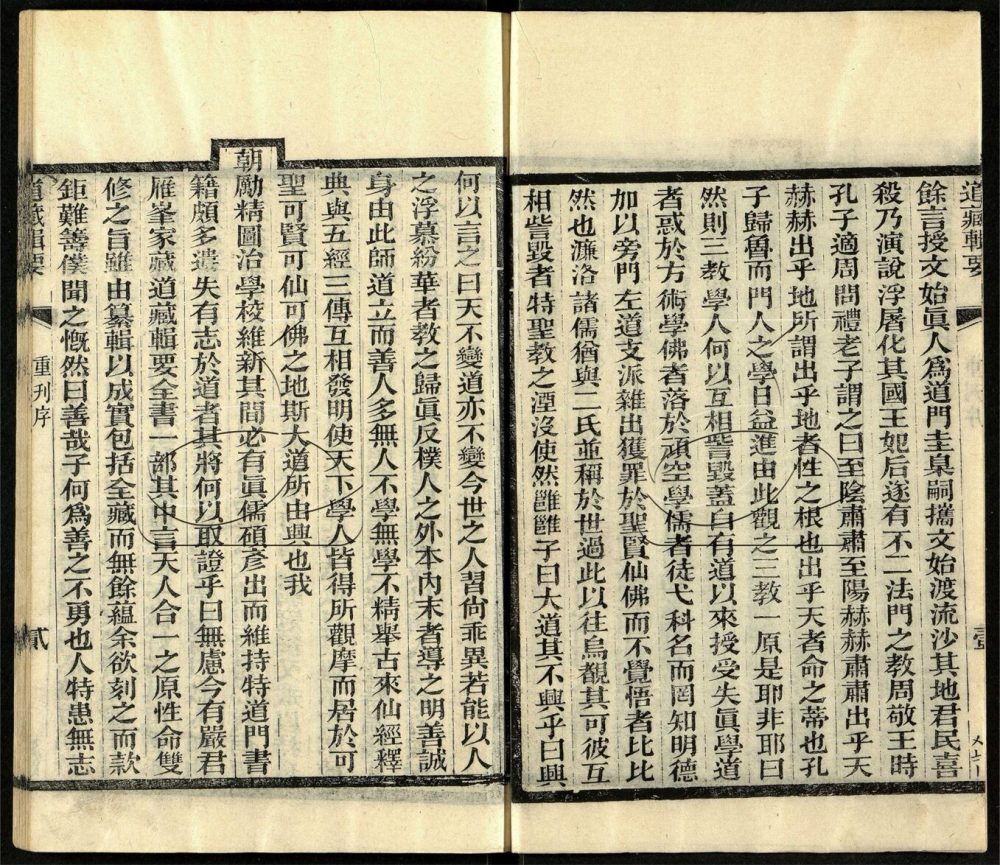 道藏輯要
壹
餘言授文始眞人爲道門圭臬嗣攜文始渡流沙其地君民喜
殺乃演說浮屠化其國王妃后遂有不二法門之教周敬王時
孔子適周問禮老子謂之曰至陰肅肅至陽赫赫肅肅出乎天
赫赫出乎地所謂出乎地者性之根也出乎天者命之蒂也孔
子歸魯而門人之學日益進由此觀之三教一原是耶非耶曰
然則三教學人何以互相訾毀蓋自有道以來授受失眞學道
者惑於方術學佛者落於頑空學儒者徒弋科名而罔知明德
加以旁門左道支派雜出獲罪於聖賢仙佛而不覺悟者比比
然也濂洛諸儒猶與二氏並稱於世過此以往烏覩其可彼互
相訾毀者特聖教之湮沒使然雔雔子曰大道其不興乎曰興
何以言之曰天不變道亦不變今世之人習尙乖異若能以人
之浮慕紛華者教之歸眞反樸人之外本內末者導之明善誠
身由此師道立而善人多無人不學無學不精舉古來仙經釋
典與五經三傳互相發明使天下學人皆得所觀摩而居於可
聖可賢可仙可佛之地斯大道所由興也我
朝勵精圖治學校維新其間必有眞儒碩彥出而維持特道門書
籍頗多遺失有志於道者其將何以取證乎曰無慮今有嚴君
雁峯家藏道藏輯要全書一部其中言天人合一之原性命雙
修之旨雖由纂輯以成實包括全藏而無餘蘊余欲刻之而款
鉅難籌僕聞之慨然曰善哉子何爲善之不勇也人特患無志
道藏輯要
重刊序
貳